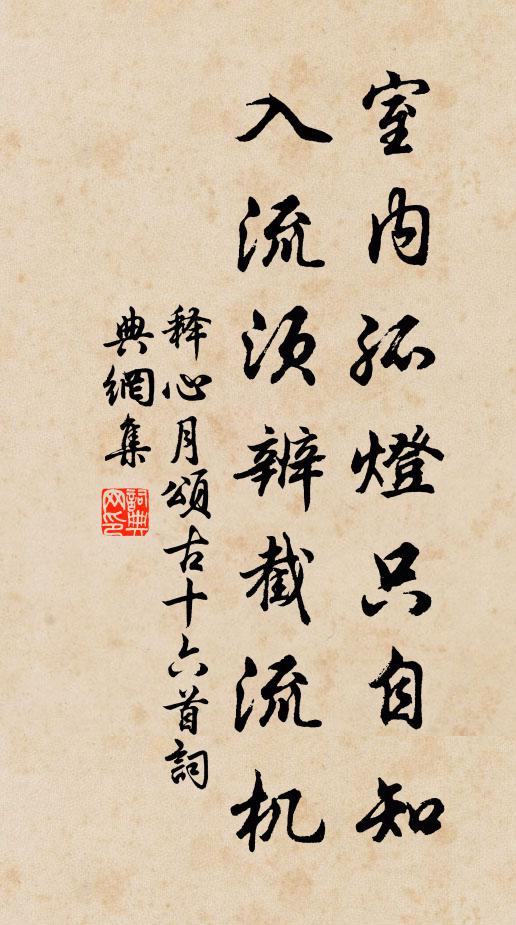 室内孤燈只自知
入流須辨截流机
释心月頌古十六首詞
典網集
詞典網印